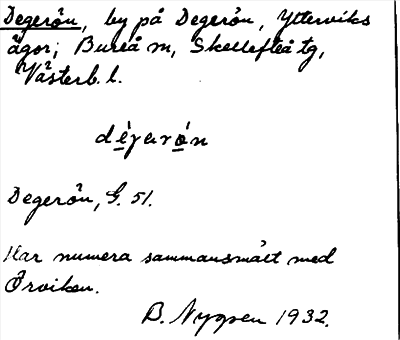 Degerön, by på Degerön, Ytterviks
ägor; Bureå sn, Skellefteå tg,
Västerb. l.
dégarón
Degerön, G. 51.
Har numera sammansmält med
Örviken.
B. 1932.